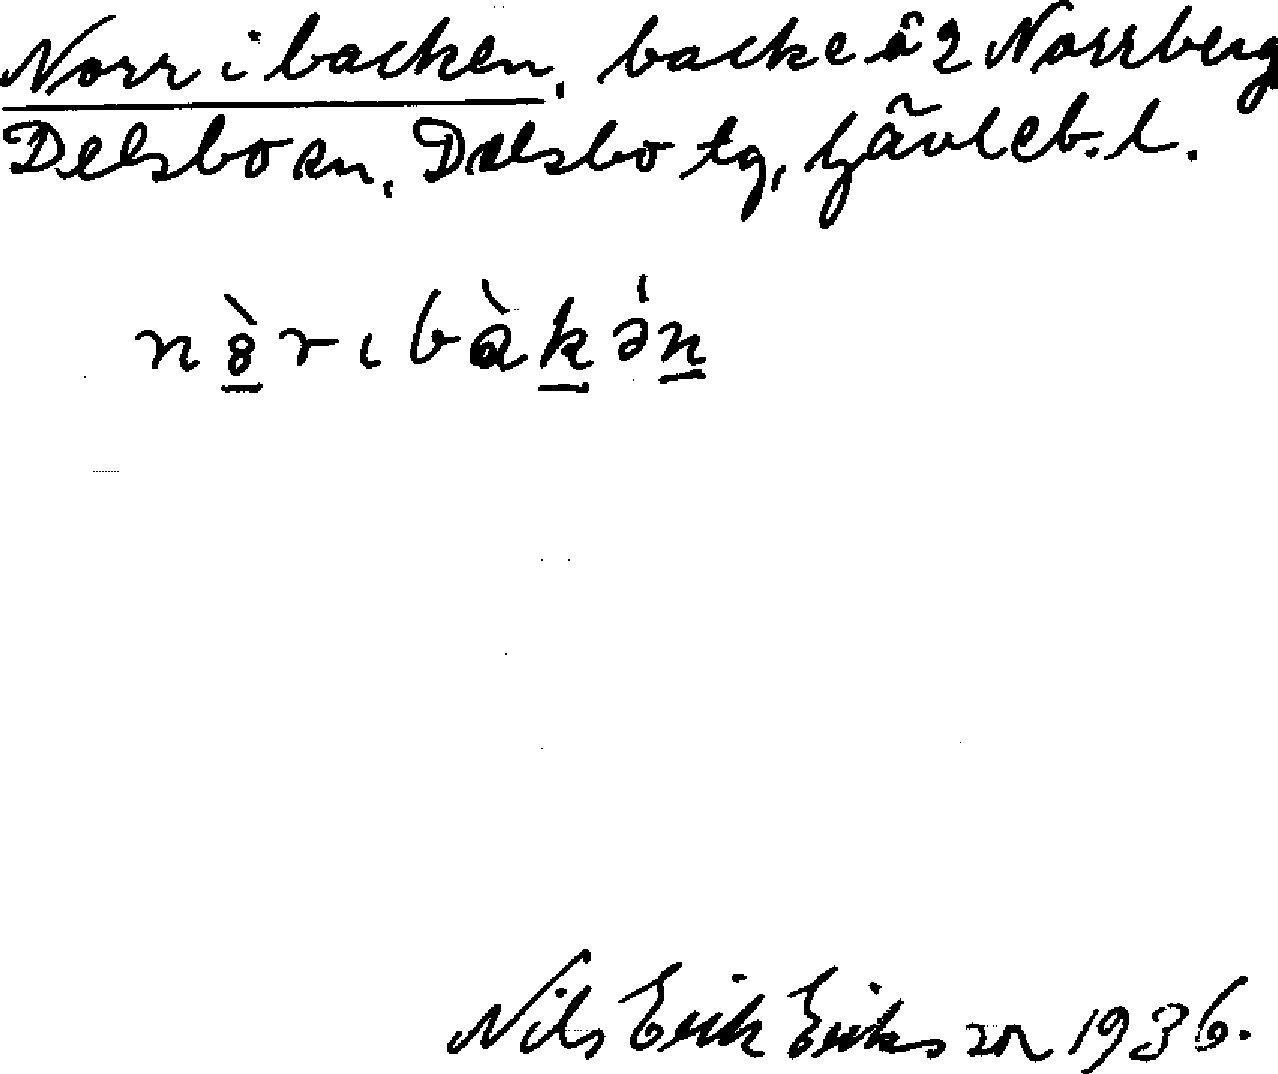 Norr i backen, backe å 2 Norrberg
Delsbo sn, Delsbo tg, Gävleb. l.
nò̱rɩbàḵə́ṉ
Nils Erik Eriksson 1936.